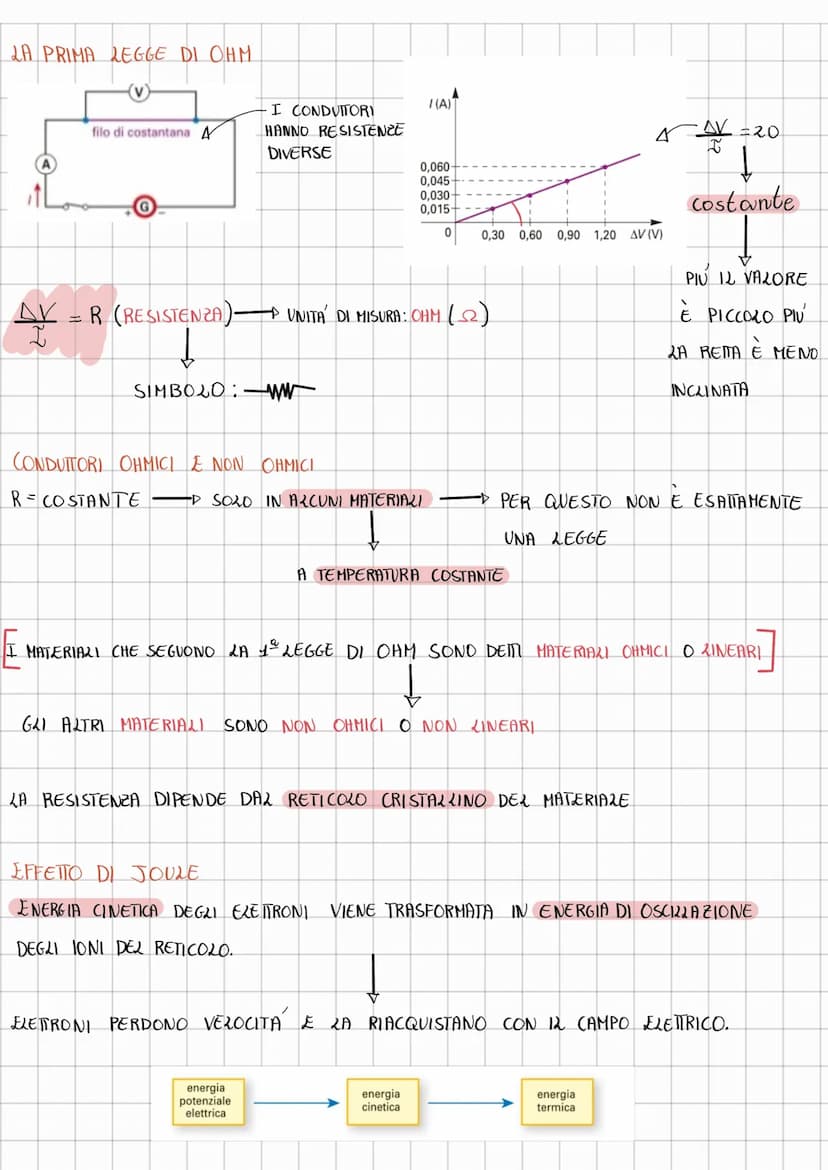 LA PRIMA LEGGE DI OHM
V
filo di costantana
A
I
G
+ -
I CONDUTTORI
HANNO RESISTENZE
DIVERSE
I (A)
0,060
0,045
0,030
0,015
0
0,30 0,60 0,90 1,20 ΔV (V)
ΔV/I = 20
costante
PIÚ IL VALORE
È PICCOLO PIÚ
LA RETTA È MENO
INCLINATA
ΔV/I = R (RESISTENZA) → UNITÁ DI MISURA: OHM (Ω)
SIMBOLO:
CONDUTTORI OHMICI E NON OHMICI
R = COSTANTE → SOLO IN ALCUNI MATERIALI → PER QUESTO NON È ESATTAMENTE
UNA LEGGE
A TEMPERATURA COSTANTE
[I MATERIALI CHE SEGUONO LA 1ª LEGGE DI OHM SONO DETTI MATERIALI OHMICI O LINEARI]
GLI ALTRI MATERIALI SONO NON OHMICI O NON LINEARI
LA RESISTENZA DIPENDE DAL RETICOLO CRISTALLINO DEL MATERIALE
EFFETTO DI JOULE
ENERGIA CINETICA DEGLI ELETTRONI VIENE TRASFORMATA IN ENERGIA DI OSCILLAZIONE
DEGLI IONI DEL RETICOLO.
ELETTRONI PERDONO VELOCITÁ E LA RIACQUISTANO CON IL CAMPO ELETTRICO.
energia
potenziale
elettrica
energia
cinetica
energia
termica